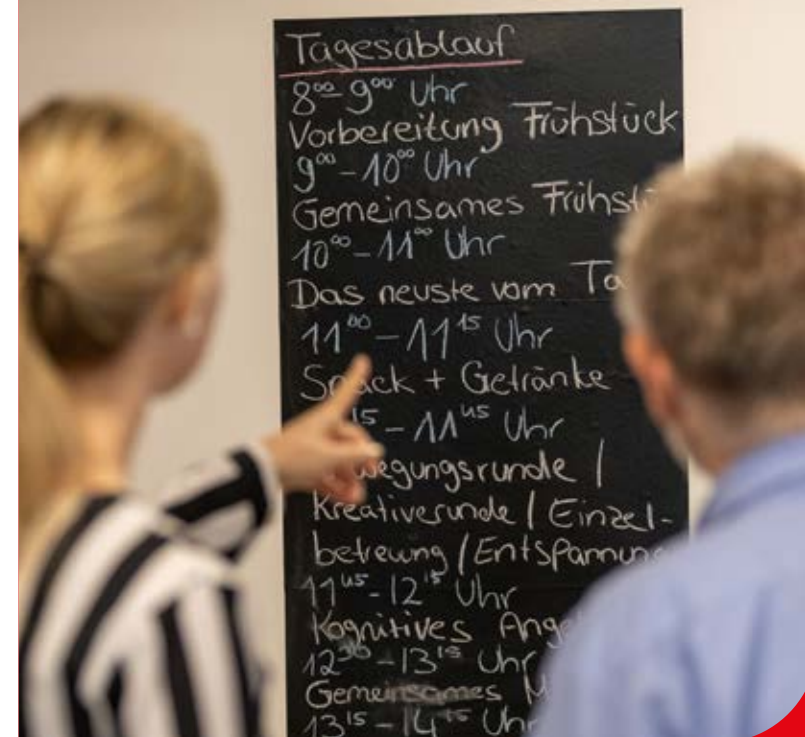 Tagesablauf
8⁰⁰-9⁰⁰ Uhr
Vorbereitung Frühstück
9⁰⁰-10⁰⁰ Uhr
Gemeinsames
10⁰⁰-11⁰⁰ Uhr
Das neuste vom
11⁰⁰-11¹⁵ Uhr
Snack + Getränke
-11⁴⁵ Uhr
/
Kreativerunde / Einzel-
betreuung / Entspannung
11⁴⁵-12¹⁵ Uhr
Kognitives
-13¹⁵ Uhr
Gemeinsames
13¹⁵- Uhr